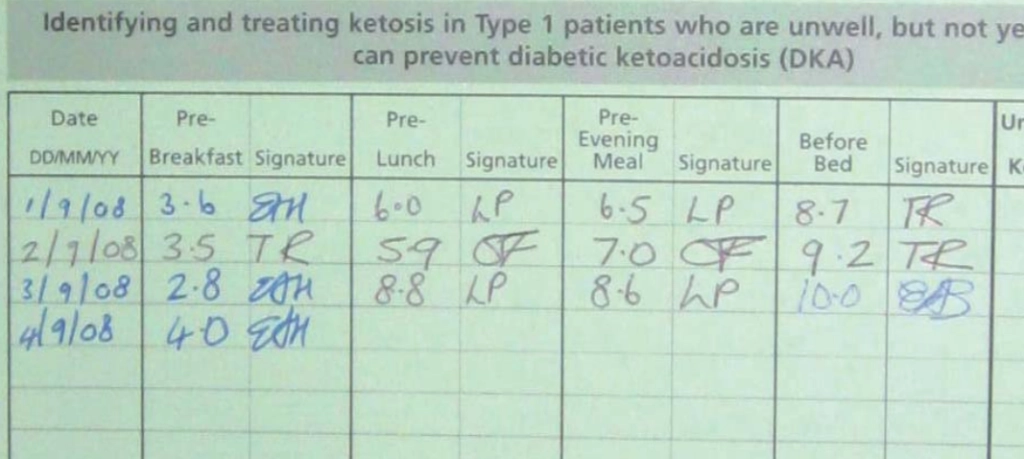 Identifying and treating ketosis in Type 1 patients who are unwell, but not ye
can prevent diabetic ketoacidosis (DKA)
Date Pre- Pre- Pre- Evening Before Ur
DD/MM/YY Breakfast Signature Lunch Signature Meal Signature Bed Signature K
1/9/08 3.6 EAH 6.0 LP 6.5 LP 8.7 TR
2/9/08 3.5 TR 5.9 OF 7.0 OF 9.2 TR
3/9/08 2.8 EAH 8.8 LP 8.6 LP 10.0 EAB
4/9/08 4.0 EAH